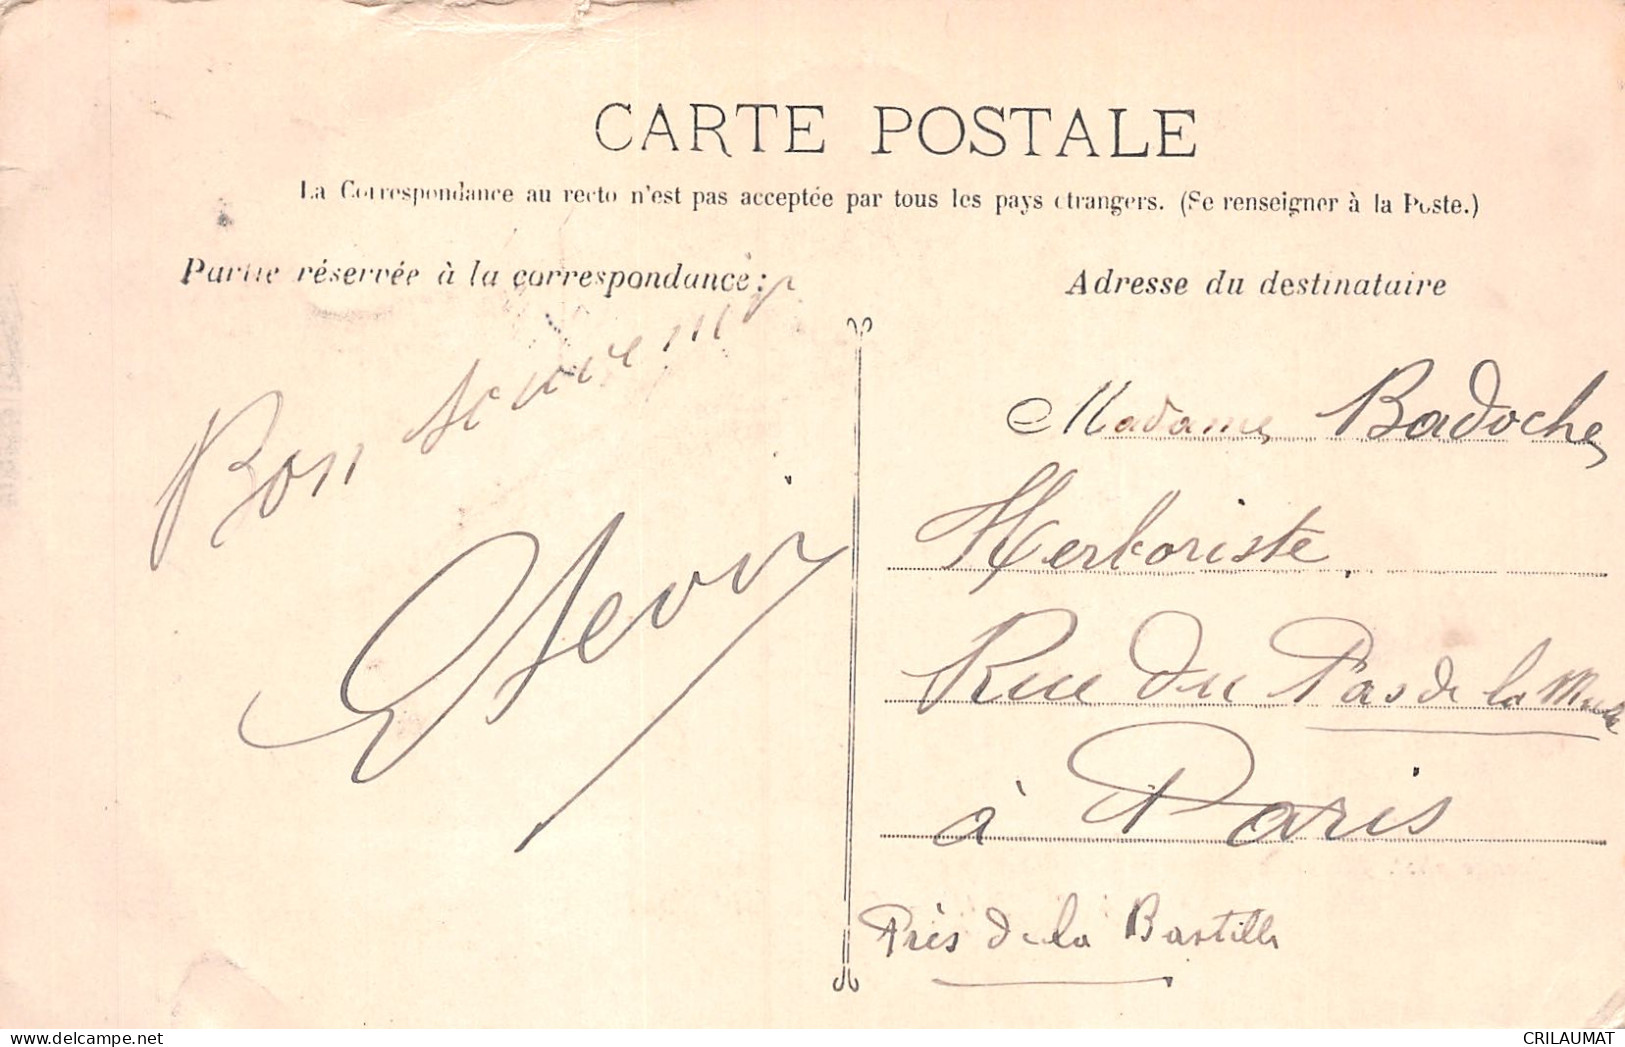 CARTE POSTALE
La Correspondance au recto n'est pas acceptée par tous les pays étrangers. (Se renseigner à la Poste.)
Partie réservée à la correspondance:
Adresse du destinataire
Bon souvenir
Madame Badoche
Herboriste
Rue du Pas de la Mule
à Paris
Près de la Bastille
CRILAUMAT